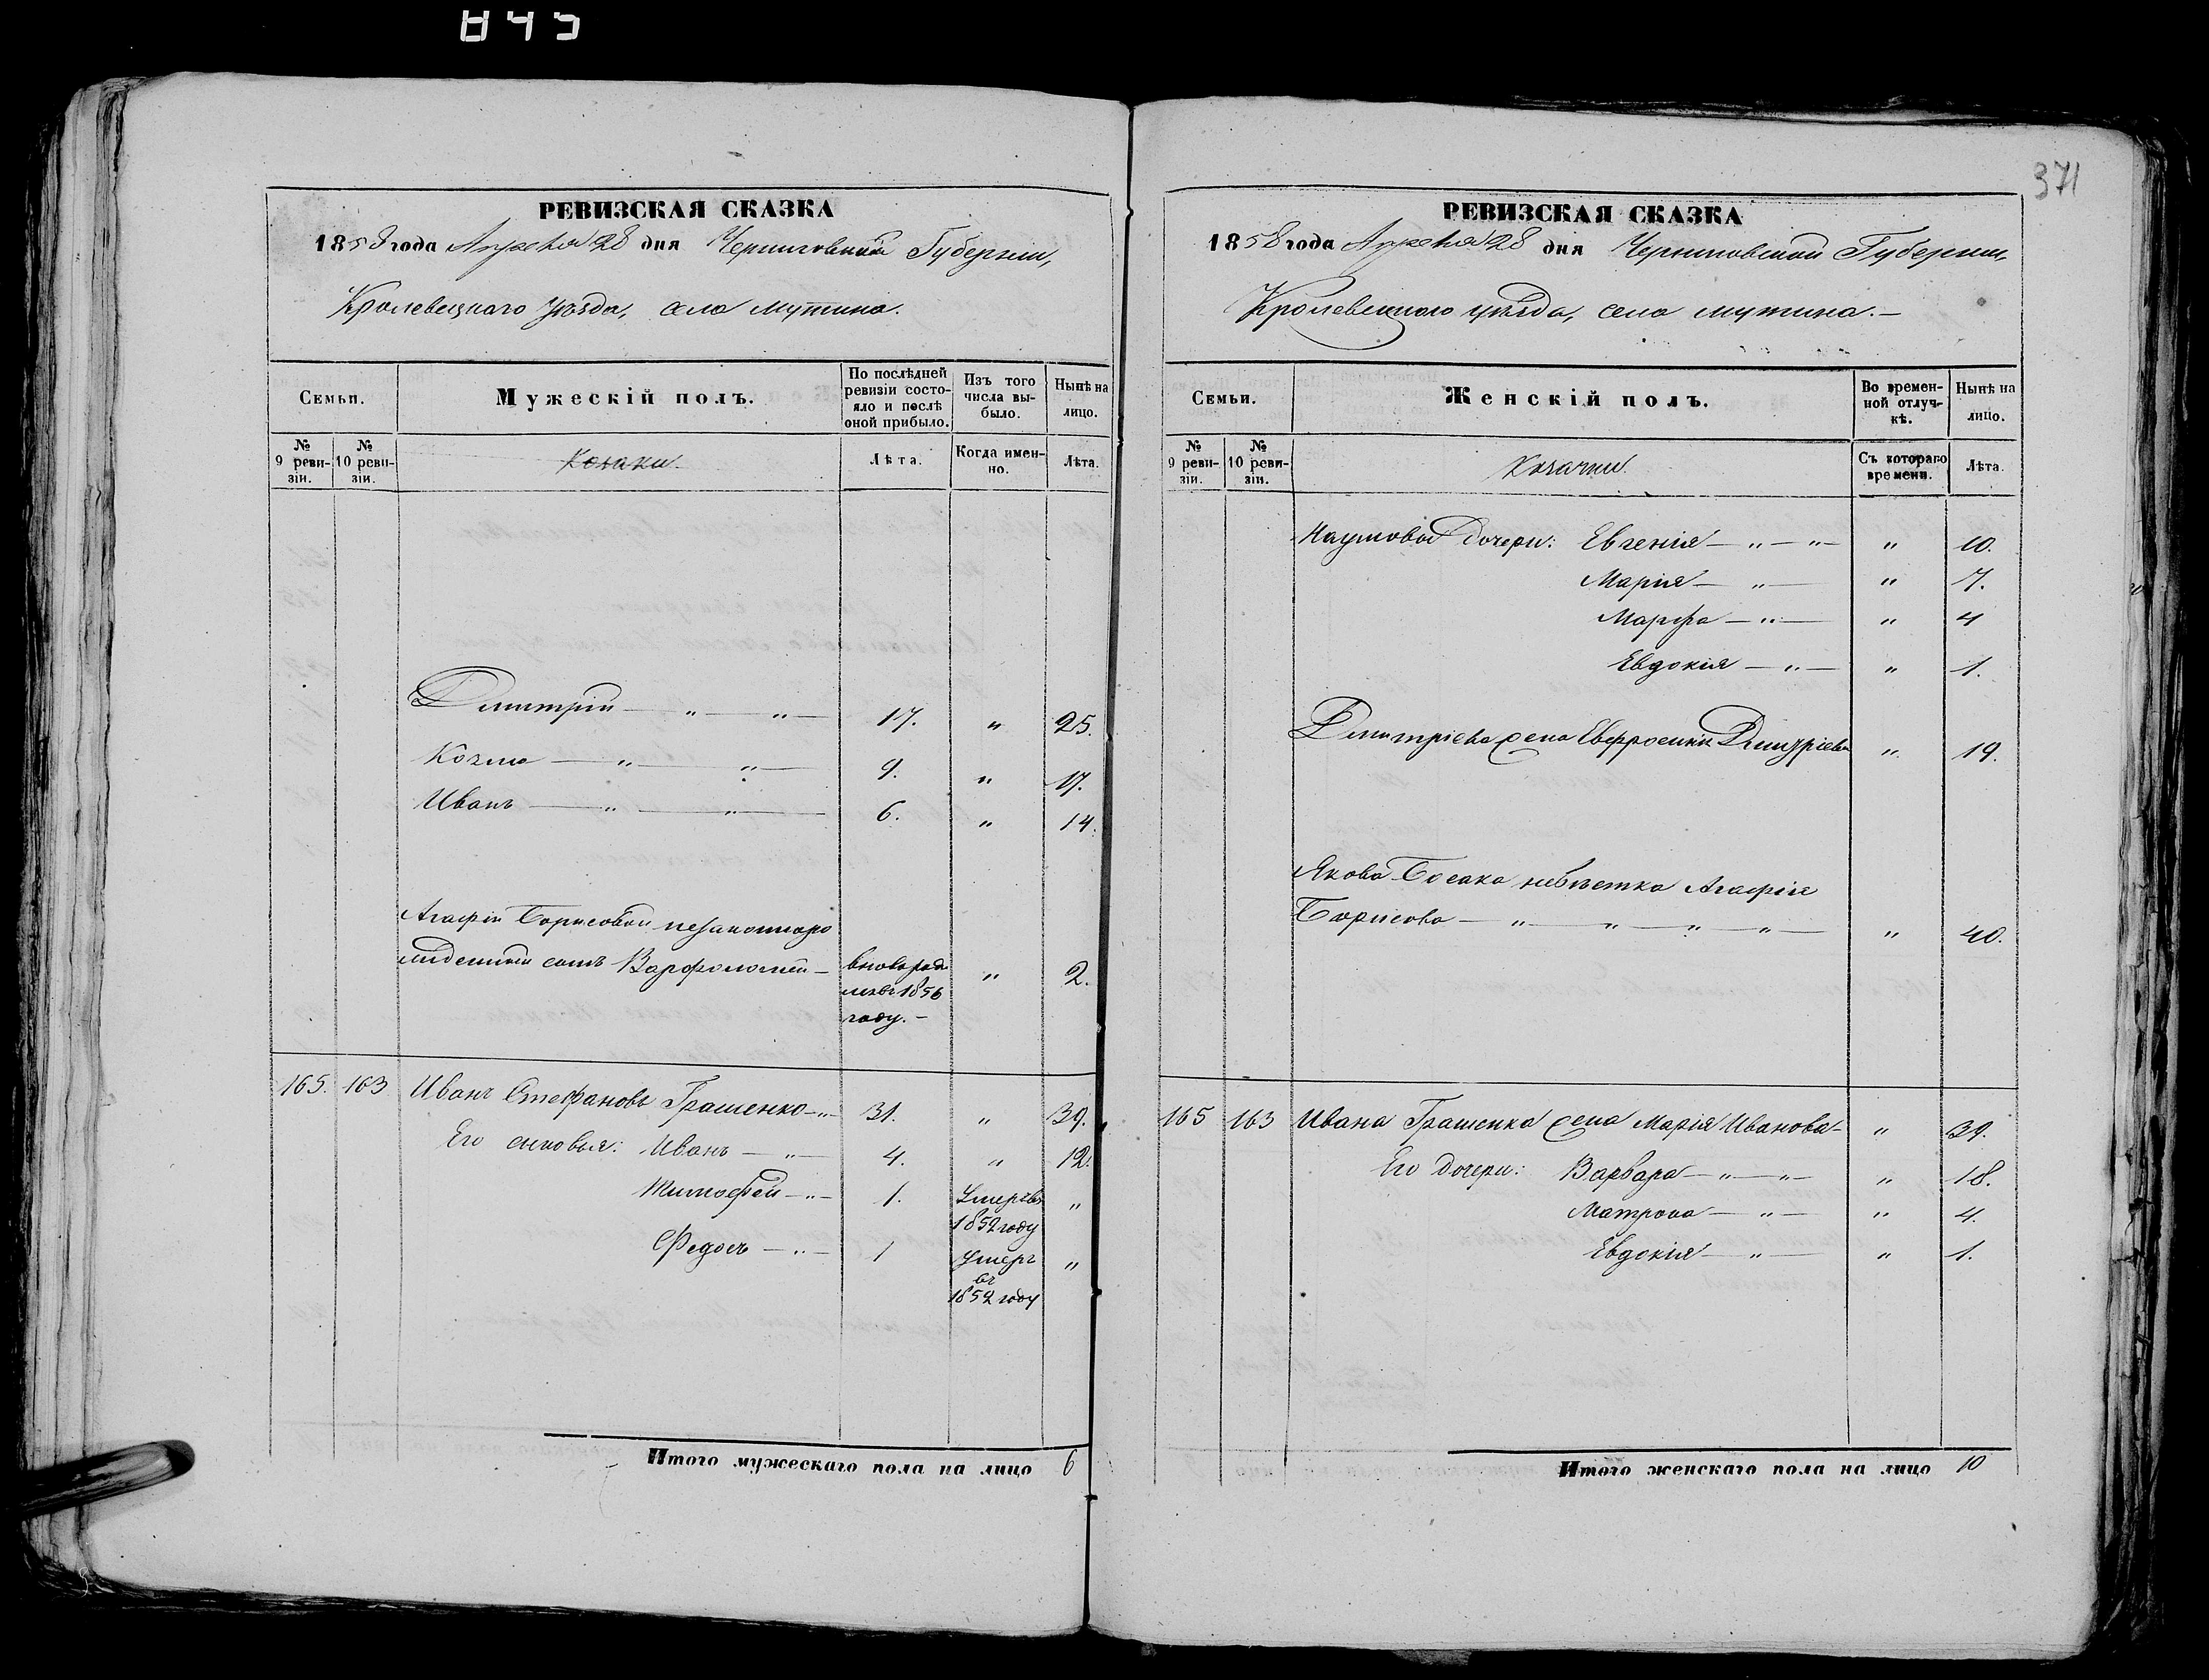 845
371
РЕВИЗСКАЯ СКАЗКА
1858 года Апреля 28 дня Черниговской Губернии,
Кролевецкаго Уѣзда, села Мутина.
Семьи.
Мужескій полъ.
По послѣдней ревизіи состояло и послѣ оной прибыло.
Изъ того числа выбыло.
Нынѣ на лицо.
№ 9 ревизіи.
№ 10 ревизіи.
Козаки.
Лѣта.
Когда именно.
Лѣта.
Дмитрій — " — " — 17. " 25.
Козма — " — " — 9. " 17.
Иванъ — " — " — 6. " 14.
Агафіи Борисовой незаконноро
жденный сынъ Варфоломей — вновь роди " 2.
лся въ 1856
году. —
165. 163 Иванъ Стефановъ Грашенко — " — 31. " 39.
Его сыновья: Иванъ — " — 4. " 12.
Тимофей — " — 1. Умеръ въ "
1852 году
Федосъ — " — 1 Умеръ "
въ
1852 году
Итого мужескаго пола на лицо 6
РЕВИЗСКАЯ СКАЗКА
1858 года Апреля 28 дня Черниговской Губернии,
Кролевецкого уѣзда, села Мутина. —
Семьи.
Женскій полъ.
Во временной отлучкѣ.
Нынѣ на лицо.
№ 9 ревизіи.
№ 10 ревизіи.
Козачки.
Съ котораго времени.
Лѣта.
Наумовы дочери: Евгенія — " — " — " 10.
Марія — " — " 7.
Марфа — " — " 4
Евдокія — " — " 1.
Дмитріева жена Евфросинія Дмитріева " 19.
Якова невѣстка Агафія
Борисова — " — " — " — " — " 40.
165 163 Ивана Грашенка жена Марія Иванова — " 39.
Его дочери: Варвара — " — " — " 18.
Матрона — " — " 4.
Евдокія — " — " 1.
Итого женскаго пола на лицо 10